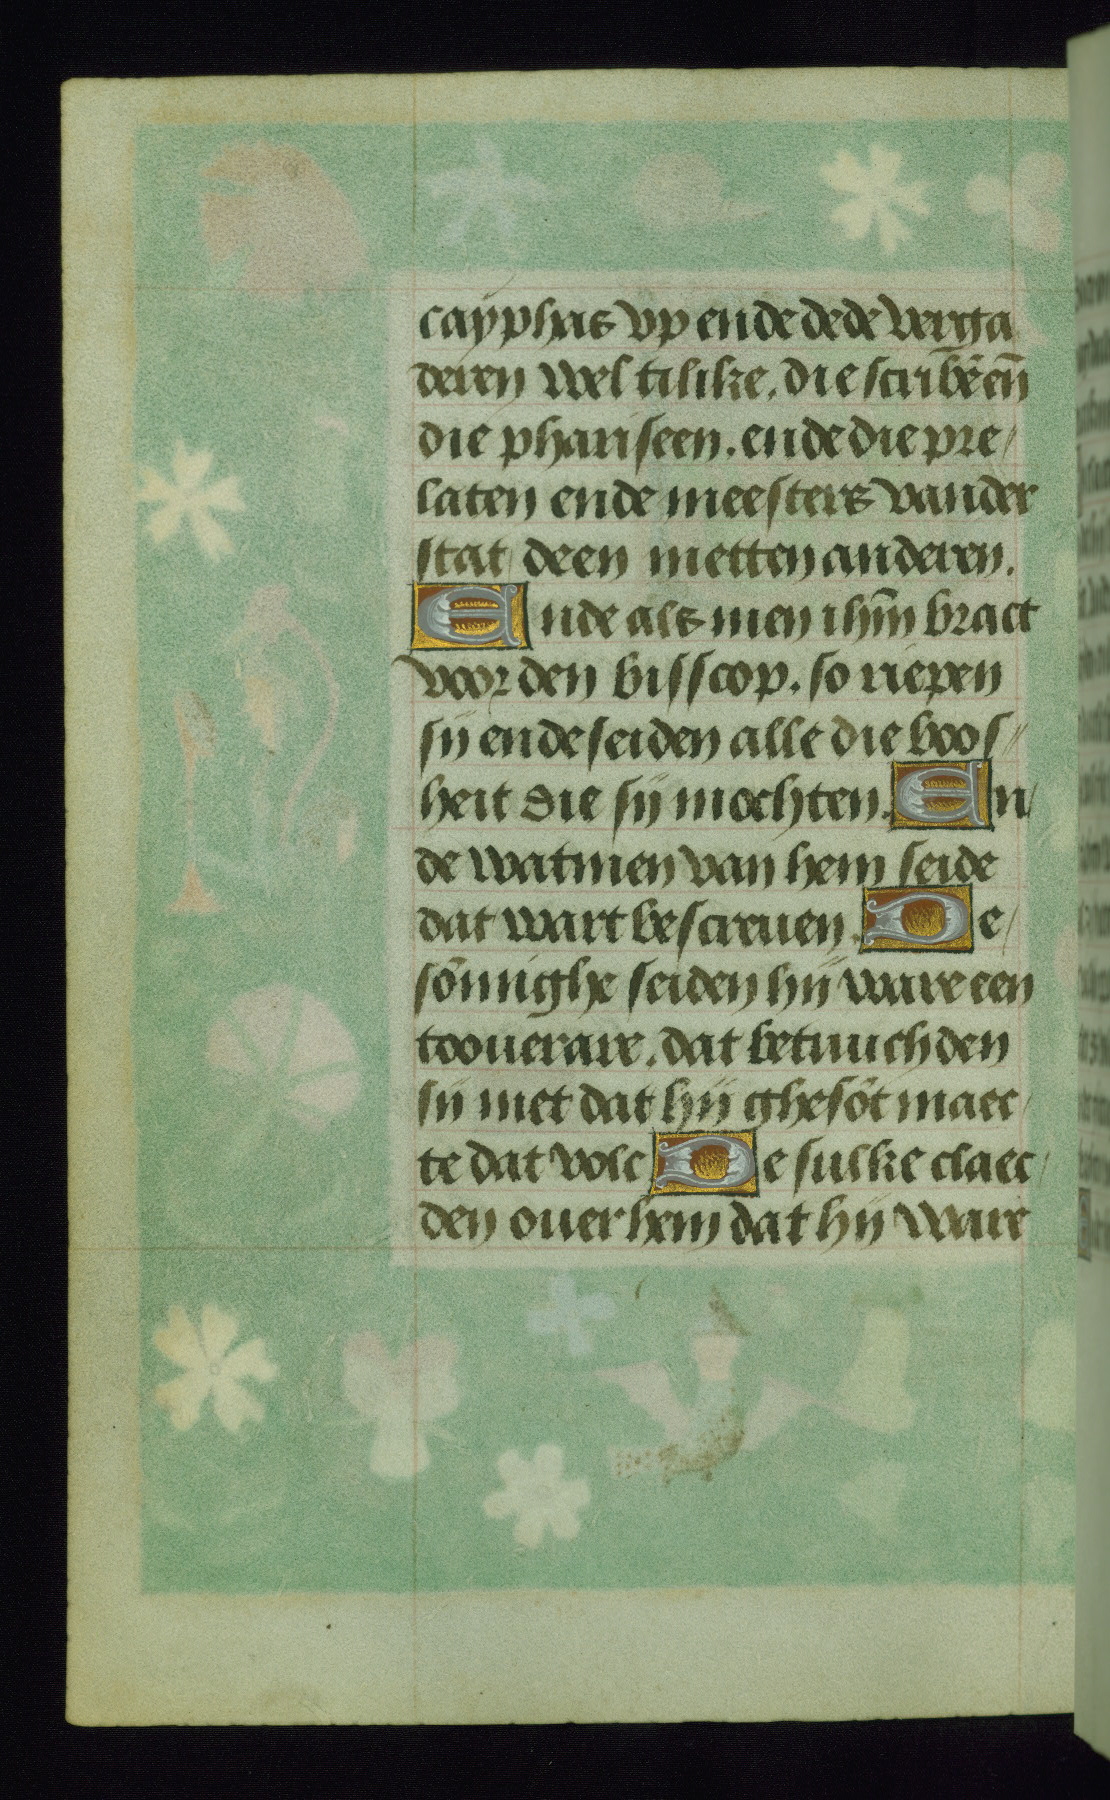 cayphas vp ende dede verga
deren wel tilike. die scribē eñ
die phariseen. ende die pre/
laten ende meesters vander
stat deen metten anderen.
Ende als men ihm̄ bract
voor den bisscop. so riepen
sij ende seiden alle die boos//
heit die sij mochten. En/
de watmen van hem seide
dat wart bescreuen. De/
sōmighe seiden hij ware een
toouerare. dat betuuchden
sij met dat hij ghesōt maec/
te dat volc De sulke claec/
den ouer hem dat hij ware